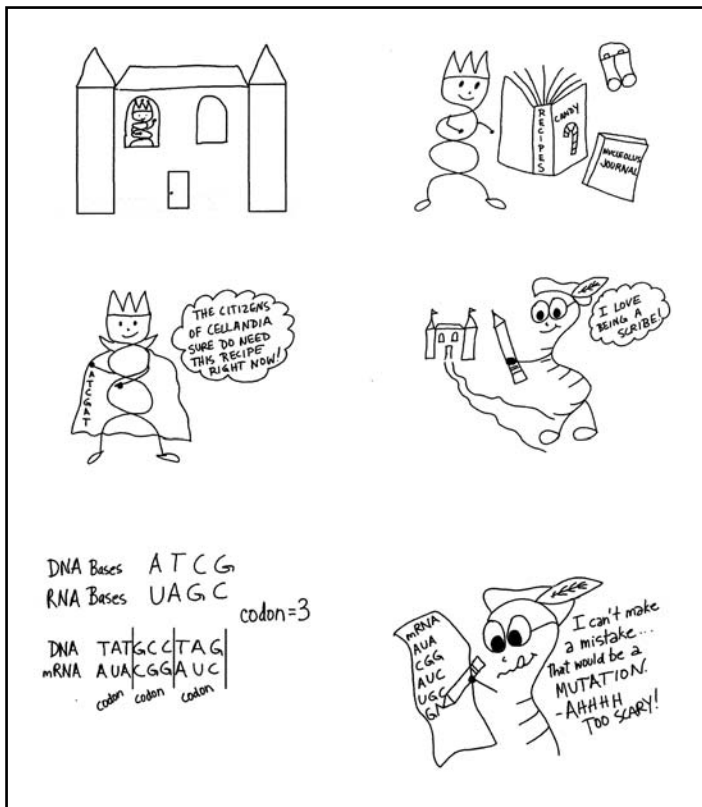 RECIPES
CANDY
NUCLEOLUS
JOURNAL
ATCGAT
THE CITIZENS
OF CELLANDIA
SURE DO NEED
THIS RECIPE
RIGHT NOW!
I LOVE
BEING A
SCRIBE!
DNA Bases A T C G
RNA Bases U A G C
codon=3
DNA TAT GCC TAG
mRNA AUA CGG AUC
codon codon codon
mRNA
AUA
CGG
AUC
UGC
I can't make
a mistake...
That would be a
MUTATION.
-AHHHH
TOO SCARY!